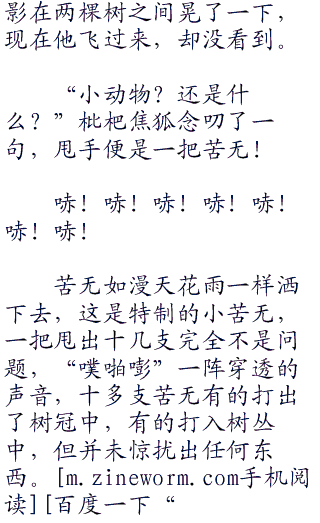 影在两棵树之间晃了一下，
现在他飞过来，却没看到。
“小动物？还是什
么？”枇杷焦狐念叨了一
句，甩手便是一把苦无！
哧！哧！哧！哧！哧！
哧！哧！
苦无如漫天花雨一样洒
下去，这是特制的小苦无，
一把甩出十几支完全不是问
题，“噗啪嘭”一阵穿透的
声音，十多支苦无有的打出
了树冠中，有的打入树丛
中，但并未惊扰出任何东
西。[m.zineworm.com手机阅
读][百度一下“